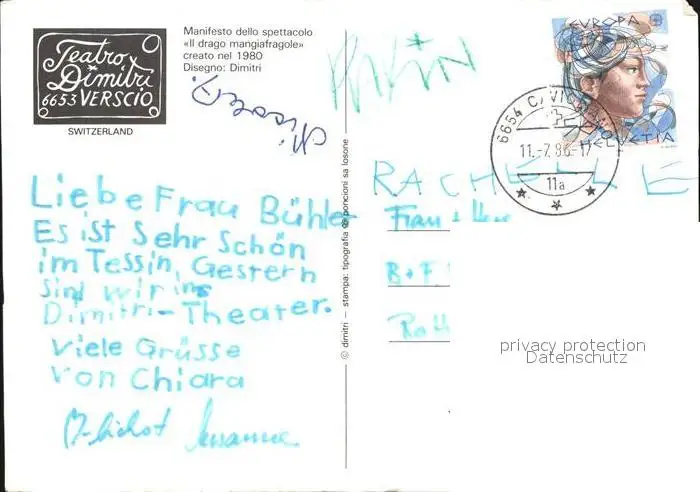 Teatro
Dimitri
6653 VERSCIO
SWITZERLAND
Manifesto dello spettacolo
«Il drago mangiafragole»
creato nel 1980
Disegno: Dimitri
EUROPA
HELVETIA
11.-7.86.-17
11a
RACHELLE
Liebe Frau Bühler
Es ist Sehr Schön
im Tessin, Gestern
sind wir ins
Dimitri-Theater.
Viele Grüsse
von Chiara
Susanne
© dimitri – stampa: tipografia poncioni sa losone
Frau +
B + F.
privacy protection
Datenschutz